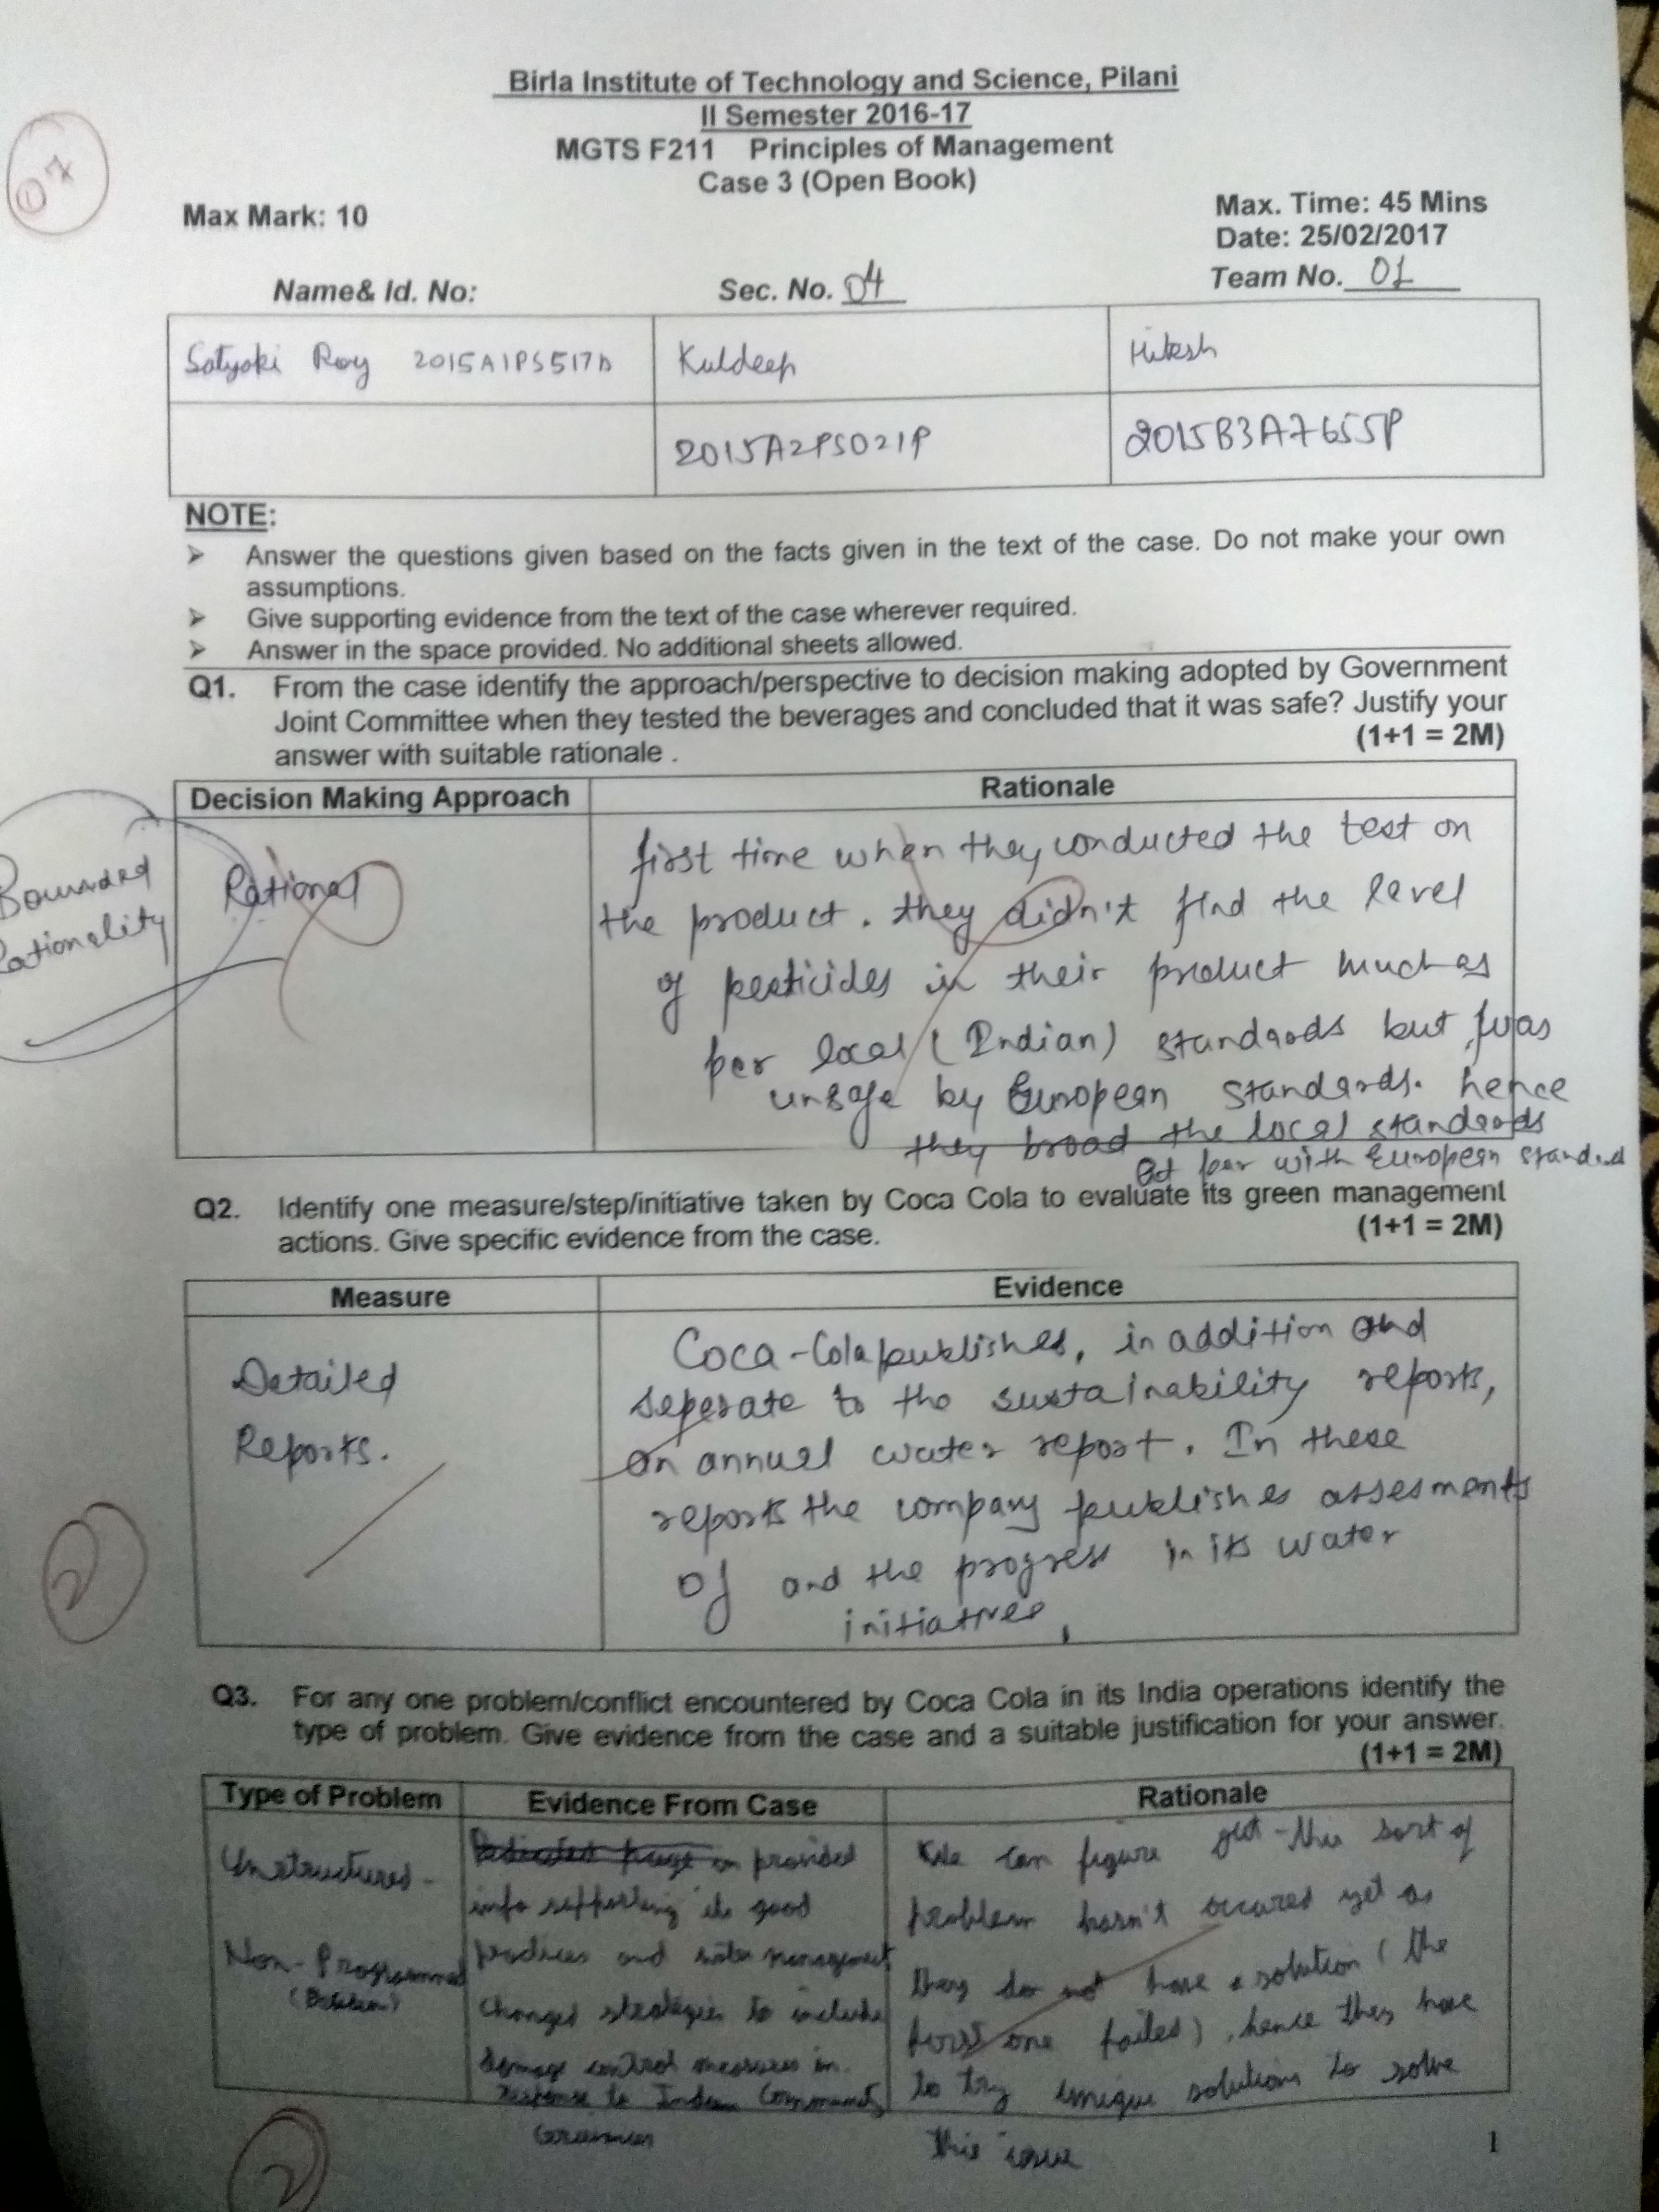 Birla Institute of Technology and Science, Pilani
II Semester 2016-17
MGTS F211 Principles of Management
Case 3 (Open Book)
Max Mark: 10
Max. Time: 45 Mins
Date: 25/02/2017
Name& Id. No:
Sec. No. 04
Team No. 01
Satyaki Roy 2015A1PS517
Kuldeep
Hitesh
2015A2PS021P
2015B3A7655P
NOTE:
➢ Answer the questions given based on the facts given in the text of the case. Do not make your own
assumptions.
➢ Give supporting evidence from the text of the case wherever required.
➢ Answer in the space provided. No additional sheets allowed.
Q1. From the case identify the approach/perspective to decision making adopted by Government
Joint Committee when they tested the beverages and concluded that it was safe? Justify your
answer with suitable rationale .
(1+1 = 2M)
Decision Making Approach
Rationale
Bounded
Rationality
Rational
first time when they conducted the test on
the product. they didn't find the level
of pesticides in their product much as
per local (Indian) standards but was
unsafe by European standards. hence
they broad the local standards
at par with European standard
Q2. Identify one measure/step/initiative taken by Coca Cola to evaluate its green management
actions. Give specific evidence from the case.
(1+1 = 2M)
Measure
Evidence
Detailed
Reports.
Coca-Cola publishes, in addition and
seperate to the sustainability reports,
an annual water report. In these
reports the company publishes assesments
of and the progress in its water
initiatives
2
Q3. For any one problem/conflict encountered by Coca Cola in its India operations identify the
type of problem. Give evidence from the case and a suitable justification for your answer.
(1+1 = 2M)
Type of Problem
Evidence From Case
Rationale
Unstructured -
Non-Programmed
provided
info supporting its good
practices and water management
Changed strategies to include
damage control measures in
response to Indian Community
We can figure out this sort of
problem hasn't occured yet as
they do not have a solution (the
first one failed), hence they have
to try unique solutions to solve
this issue
2
1